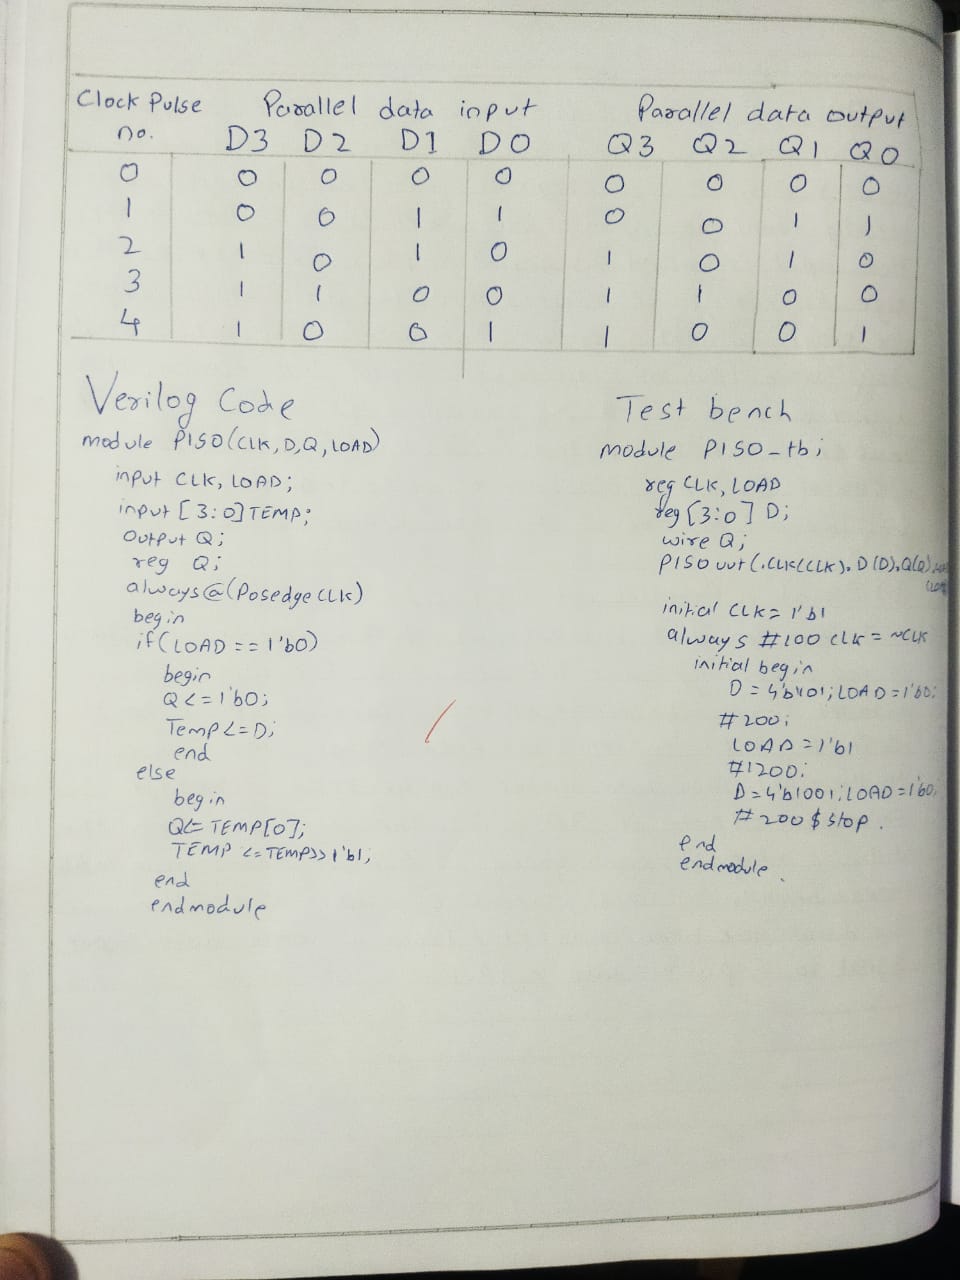 Clock Pulse no. Parallel data input Parallel data output
D3 D2 D1 D0 Q3 Q2 Q1 Q0
0 0 0 0 0 0 0 0 0
1 0 0 1 1 0 0 1 1
2 1 0 1 0 1 0 1 0
3 1 1 0 0 1 1 0 0
4 1 0 0 1 1 0 0 1
Verilog Code
module PISO(CLK, D, Q, LOAD)
input CLK, LOAD;
input [3:0] TEMP;
Output Q;
reg Q;
always@(Posedge CLK)
begin
if(LOAD == 1'b0)
begin
Q<=1'b0;
Temp<=D;
end
else
begin
Q<= TEMP[0];
TEMP <= TEMP>>1'b1;
end
endmodule
Test bench
module PISO-tb;
reg CLK, LOAD
reg [3:0] D;
wire Q;
PISO uut (.CLK(CLK). D(D), Q(Q)
initial CLK= 1'b1
always #100 CLK = ~CLK
initial begin
D = 4'b1101; LOAD = 1'b0;
#200;
LOAD = 1'b1
#1200;
D = 4'b1001; LOAD = 1'b0;
#200 $stop.
end
endmodule.